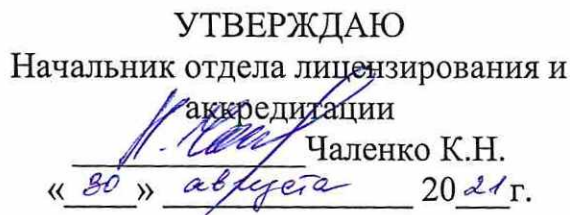 УТВЕРЖДАЮ
Начальник отдела лицензирования и
аккредитации
Чаленко К.Н.
«30» августа 2021г.